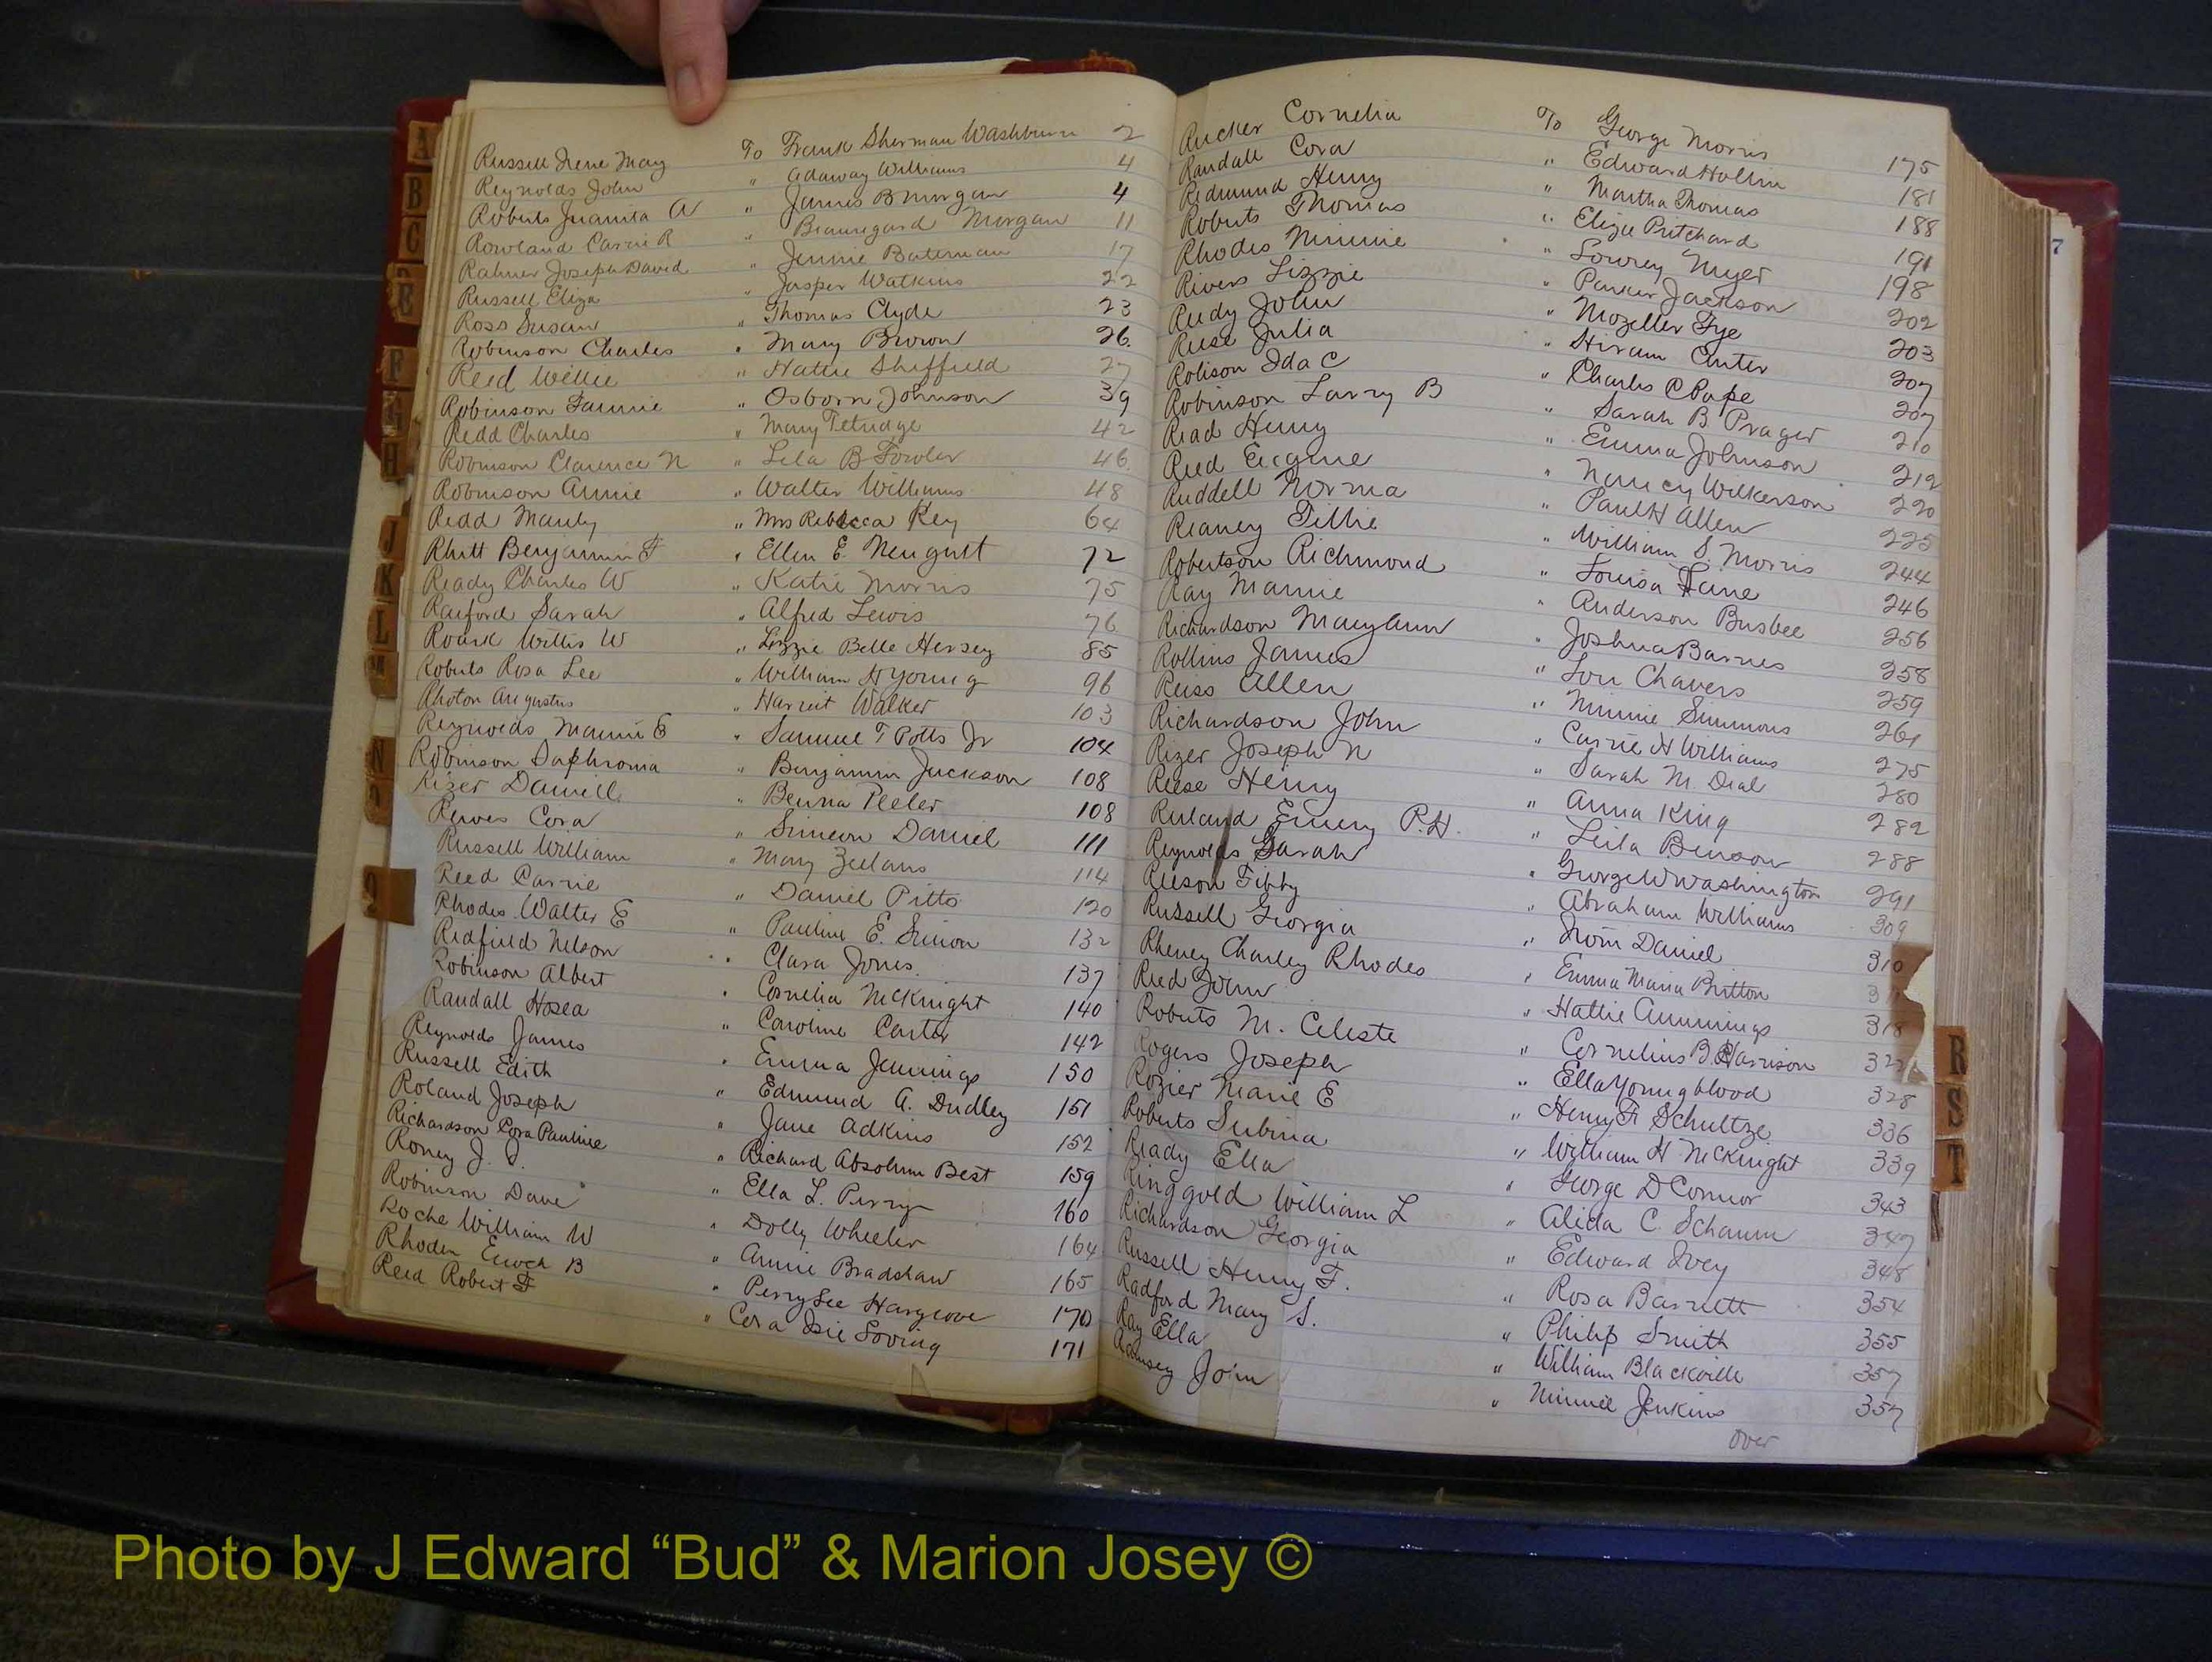 Russell Irene May To Frank Sherman Washburn 2
Reynolds John " Adaway Williams 4
Roberts Juanita A " James B Morgan 4
Rowland Carrie R " Beauregard Morgan 11
Rahner Joseph David " Jennie Bateman 17
Russell Eliza " Jasper Watkins 22
Ross Susan " Thomas Clyde 23
Robinson Charles " Mary Brown 26
Reed Willie " Hattie Sheffield 27
Robinson Fannie " Osborn Johnson 39
Redd Charles " Mary Tetridge 42
Robinson Clarence N " Lela B Fowler 46
Robinson Annie " Walter Williams 48
Redd Manly " Mrs Rebecca Key 64
Rhett Benjamin F " Ellen E. Neugust 72
Ready Charles W " Katie Morris 75
Raiford Sarah " Alfred Lewis 76
Roark Willis W " Lizzie Belle Hersey 85
Roberts Rosa Lee " William H Young 96
Rhoton Augustus " Harriet Walker 103
Reynolds Mamie E " Samuel T Potts Jr 104
Robinson Daphroma " Benjamin Jackson 108
Rizer Daniell " Benna Peeler 108
Reives Cora " Simeon Daniel 111
Russell William " Mary Zeelans 114
Reed Carrie " Daniel Pitts 120
Rhodes Walter E " Pauline E. Simon 132
Redfield Nelson " Clara Jones 137
Robinson Albert " Cornelia McKnight 140
Randall Hosea " Caroline Carter 142
Reynolds James " Emma Jennings 150
Russell Edith " Edmund A. Dudley 151
Roland Joseph " Jane Adkins 152
Richardson Cora Pauline " Richard Absolum Best 159
Roney J. J. " Ella L. Perry 160
Robinson Dave " Dolly Wheeler 164
Roche William W " Annie Bradshaw 165
Rhoden Enoch B " Perry Lee Hargrove 170
Reed Robert F " Cora Isie Loving 171
Rucker Cornelia To George Morris 175
Randall Cora " Edward Hollin 181
Redmund Henry " Martha Thomas 188
Roberts Thomas " Eliza Pritchard 191
Rhodes Minnie " Lowrey Myer 198
Rivers Lizzie " Parker Jackson 202
Rudy John " Mozeller Tye 203
Ruse Julia " Hiram Carter 207
Robison Ida C " Charles C Pope 207
Robinson Larry B " Sarah B. Prager 210
Read Henry " Emma Johnson 212
Reed Eugene " Nancy Wilkerson 220
Ruddell Norma " Paul H Allen 225
Reaney Tillie " William S. Morris 244
Robertson Richmond " Louisa Lane 246
Ray Mamie " Anderson Busbee 256
Richardson Mary Ann " Joshua Barnes 258
Rollins James " Lou Chavers 259
Reiss Allen " Minnie Simmons 261
Richardson John " Carrie H Williams 275
Rizer Joseph N " Sarah M. Dial 280
Reese Henry " Anna King 282
Ruland Emery P.H. " Leila Benson 288
Reynolds Sarah " George W Washington 291
Reeson Tibby " Abraham Williams 309
Russell Georgia " Daniel 310
Rheney Charley Rhodes " Emma Maria Britton
Reed John " Hattie Cummings 318
Roberts M. Celeste " Cornelius B Harrison
Rogers Joseph " Ella Youngblood 328
Rozier Marie E " Henry F. Schultze 336
Roberts Subina " William H McKnight 339
Ready Ella " George D Connor 343
Ringgold William L " Alida C. Schaum 347
Richardson Georgia " Edward Ivey 348
Russell Henry F. " Rosa Barnett 354
Radford Mary S. " Philip Smith 355
Ray Ella " William Blackville 357
Ramsey John " Minnie Jenkins 357
over
A
B
C
E
F
G
H
J
K
L
M
N
O
Q
R
S
T
7
Photo by J Edward “Bud” & Marion Josey ©